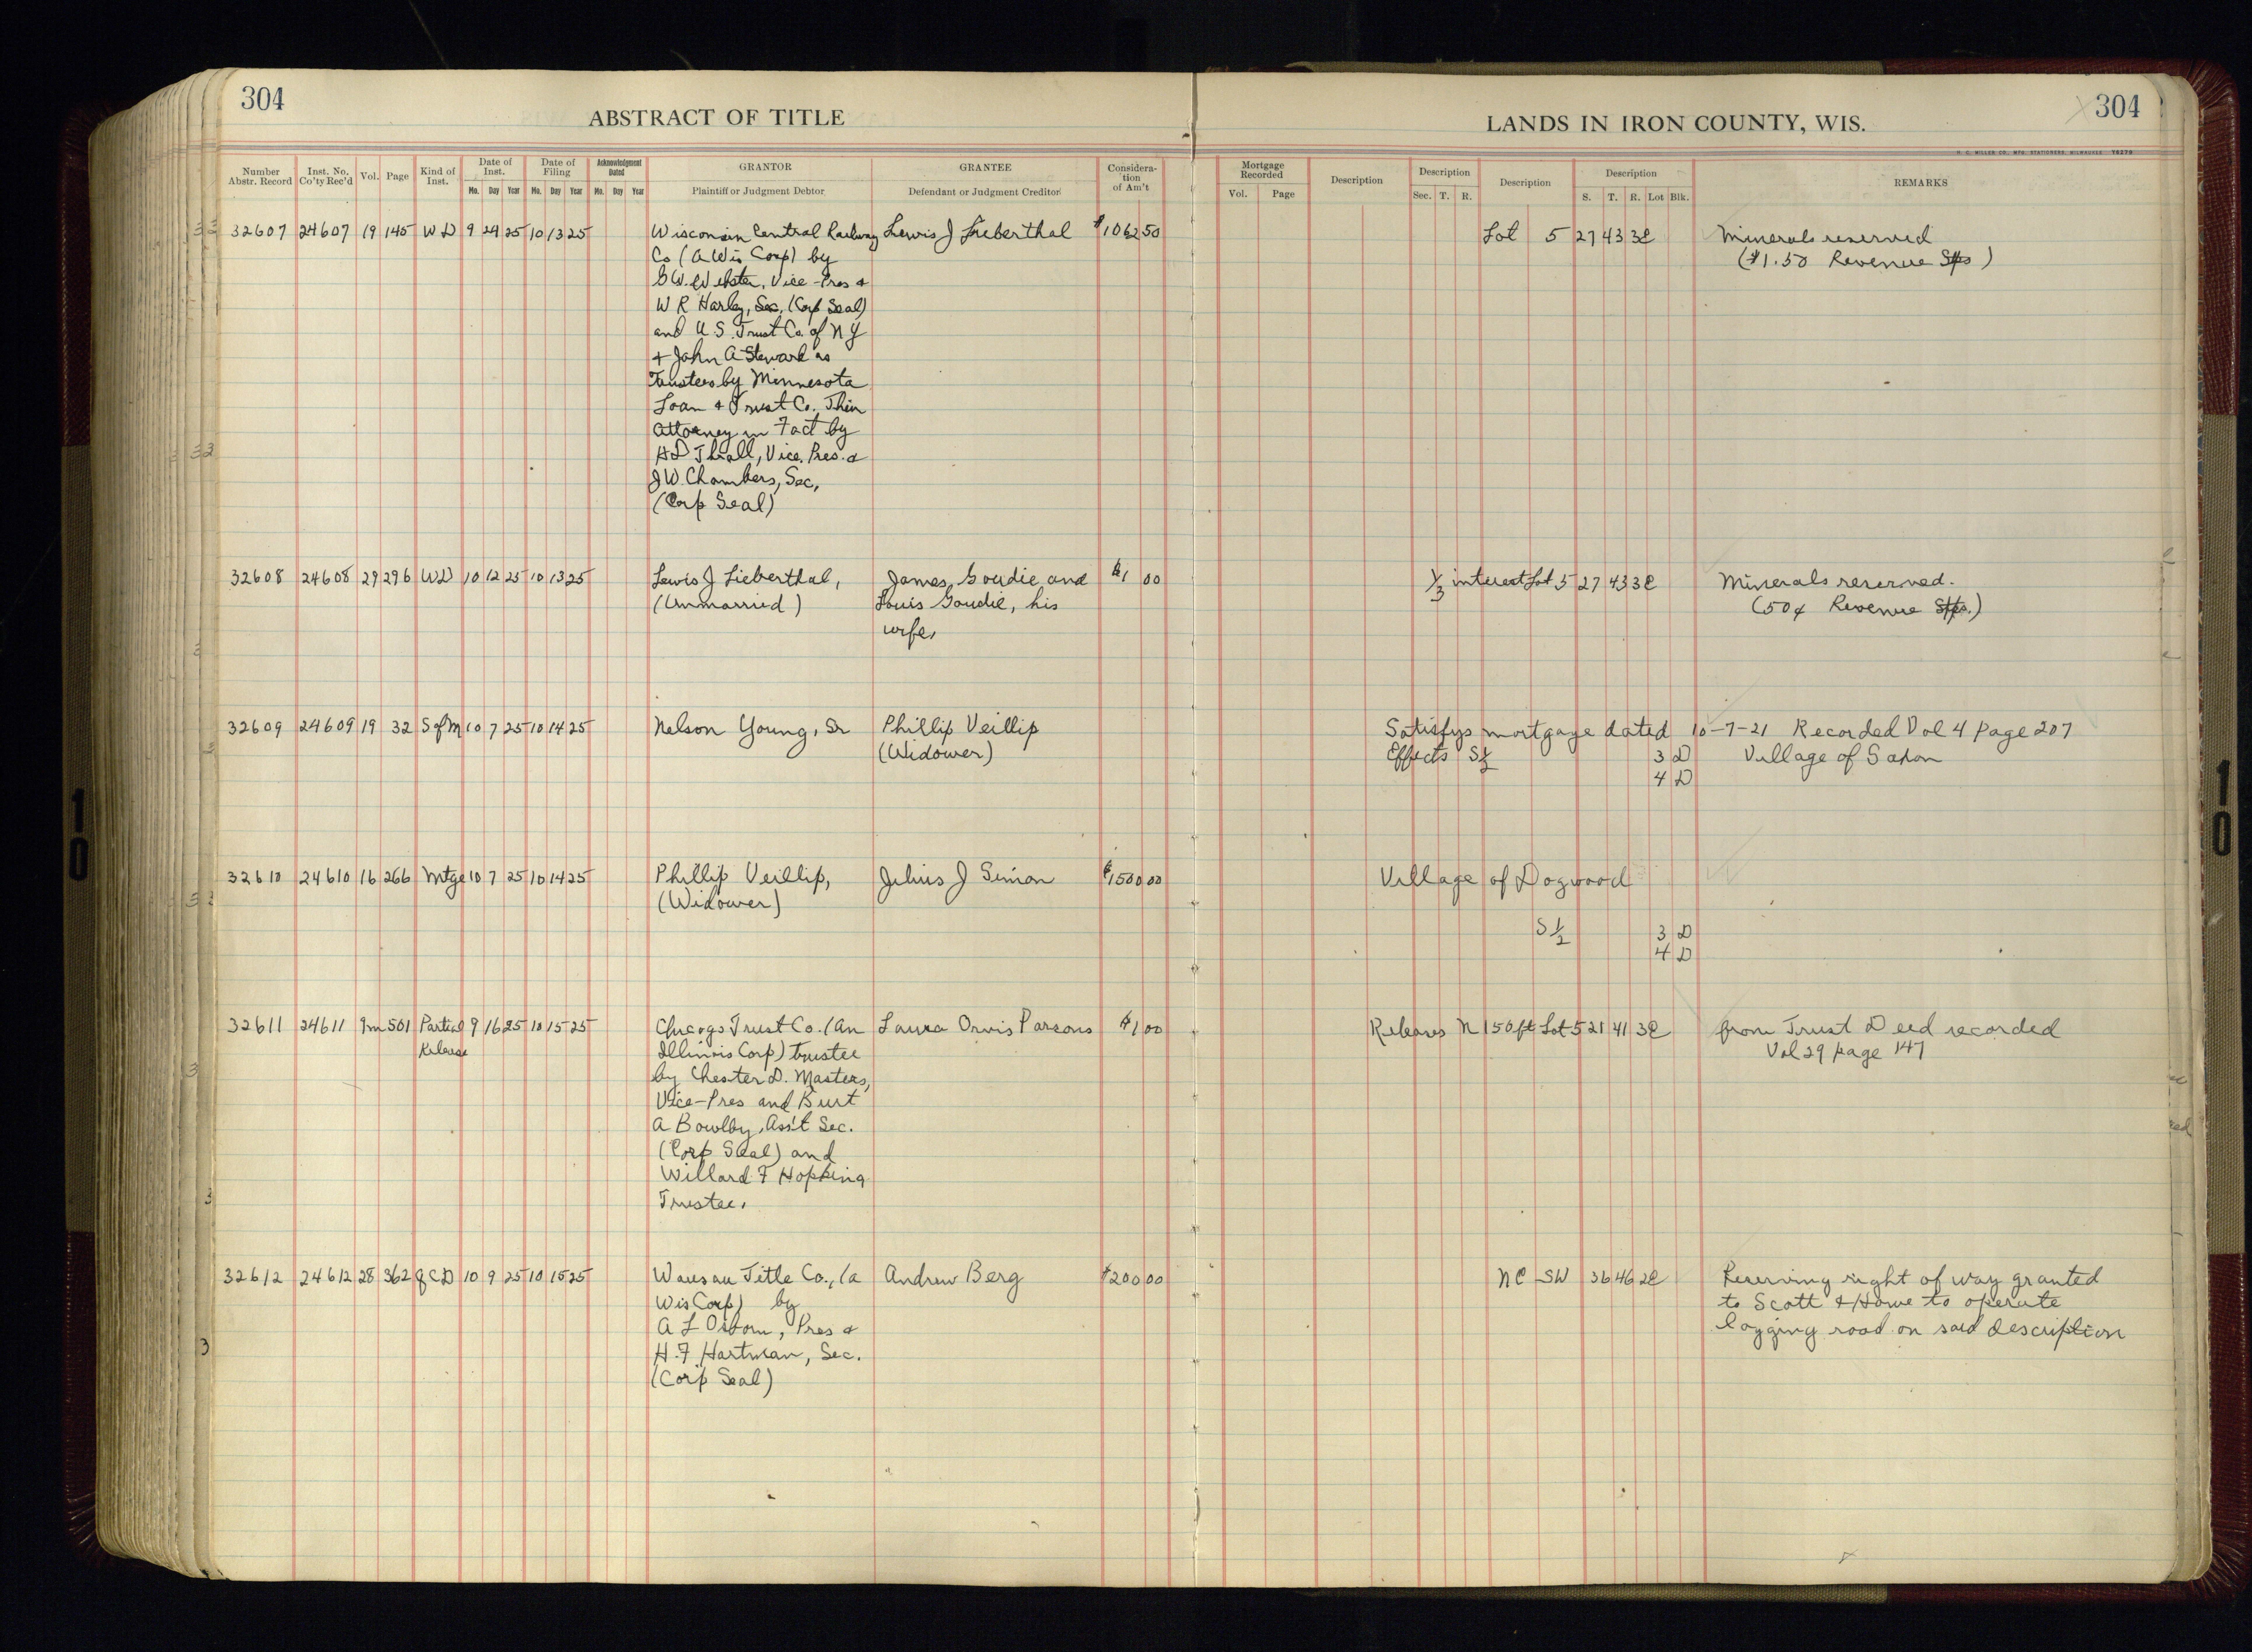 304
ABSTRACT OF TITLE
LANDS IN IRON COUNTY, WIS.
304
H. C. MILLER CO., MFG. STATIONERS, MILWAUKEE
Number Abstr. Record Inst. No. Co'ty Rec'd Vol. Page Kind of Inst. Date of Inst. Mo. Day Year Date of Filing Mo. Day Year Acknowledgment Dated Mo. Day Year GRANTOR Plaintiff or Judgment Debtor GRANTEE Defendant or Judgment Creditor Considera-tion of Am't Mortgage Recorded Vol. Page Description Description Sec. T. R. Description Description S. T. R. Lot Blk. REMARKS
32607 24607 19 145 WD 9 24 25 10 13 25 Wisconsin Central Railway Lewis J Lieberthal $1062 50 Lot 5 27 43 3E Minerals reserved
Co (A Wis Corp) by ($1.50 Revenue Stps)
G W Webster, Vice-Pres &
W R Harley, Sec, (Corp Seal)
and U.S. Trust Co. of N Y
& John A Steward as
Trustees by Minnesota
Loan & Trust Co. Their
Attorney in Fact by
H D Thrall, Vice. Pres. &
J W. Chambers, Sec,
(Corp Seal)
32608 24608 29 296 WD 10 12 25 10 13 25 Lewis J Lieberthal, James Goudie and $1 00 1/3 interest Lot 5 27 43 3E Minerals reserved.
(Unmarried) Louis Goudie, his (50¢ Revenue Stps.)
wife,
32609 24609 19 32 S of M 10 7 25 10 14 25 Nelson Young, Sr Phillip Veillip Satisfys mortgage dated 10-7-21 Recorded Vol 4 page 207
(Widower) Effects S 1/2 3 D Village of Saxon
4 D
32610 24610 16 266 Mtge 10 7 25 10 14 25 Phillip Veillip, Julius J Simon $1500 00 Village of Dogwood
(Widower)
S 1/2 3 D
4 D
32611 24611 9m 501 Partial 9 16 25 10 15 25 Chicago Trust Co. (An Laura Orvis Parsons $1 00 Releases N 150 ft Lot 5 21 41 3E from Trust Deed recorded
Release Illinois Corp) trustee Vol 29 page 147
by Chester D. Masters,
Vice-Pres and Burt
A Bowlby, Ass't Sec.
(Corp Seal) and
Willard F Hopkins
Trustee,
32612 24612 28 362 QCD 10 9 25 10 15 25 Wausau Title Co., (a Andrew Berg $200 00 NE SW 36 46 2E Reserving right of way granted
Wis Corp) by to Scott & Howe to operate
A L Osborn, Pres & logging road on said description
H. F Hartman, Sec.
(Corp Seal)